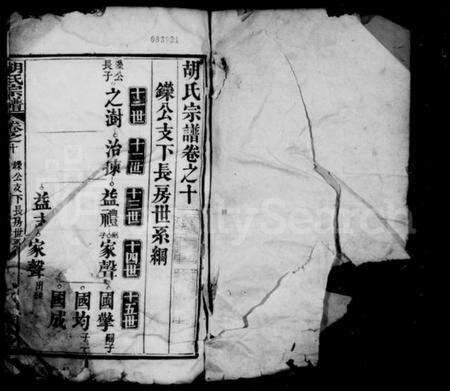 083931
胡氏宗譜卷之十
鑅公支下長房世系綱
十一世
十二世
十三世
十四世
十五世
長子
之澍
治
益禮
家聲
國擎
嗣子
國均
國成
益
家聲
出嗣
胡氏宗譜
卷之十
鑅公支下長房世系
FamilySearch